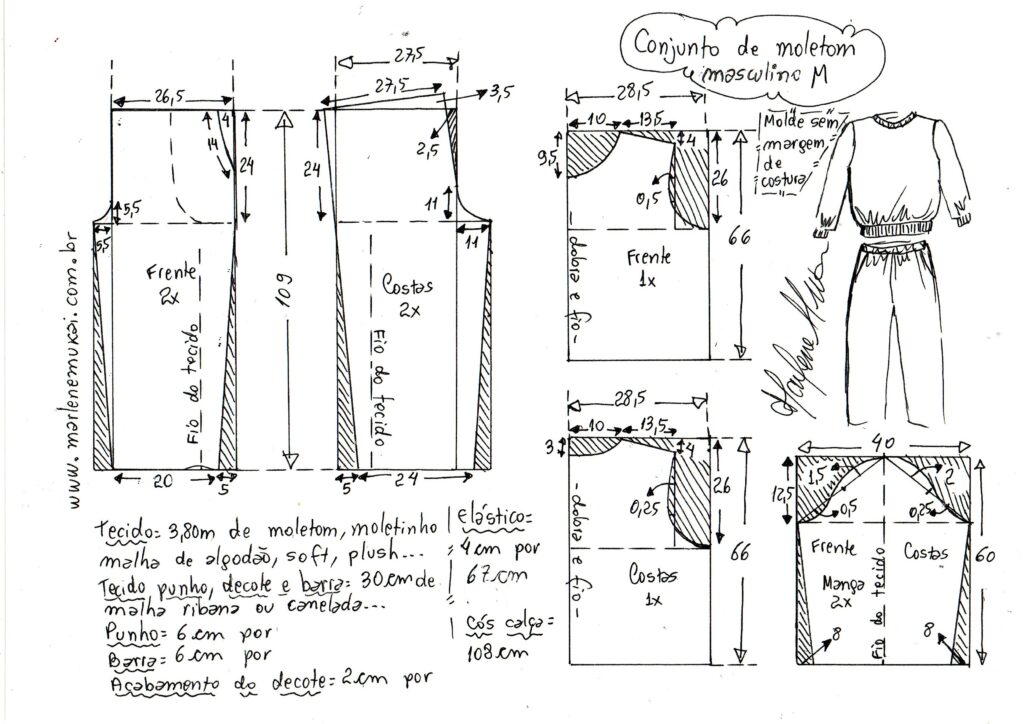 Conjunto de moletom
masculino M
Molde sem
margem
de
costura
www.marlenemukai.com.br
26,5
4
14
24
5,5
5,5
Frente
2x
Fio do tecido
20
5
109
27,5
27,5
3,5
2,5
24
11
11
Costas
2x
Fio do tecido
5
24
28,5
10
13,5
9,5
4
0,5
26
66
dobra e fio
Frente
1x
28,5
10
13,5
3
4
0,25
26
66
dobra e fio
Costas
1x
40
12,5
1,5
2
0,5
0,25
Frente
Costas
Manga
2x
Fio do tecido
60
8
8
Tecido= 3,80m de moletom, moletinho
malha de algodão, soft, plush...
Tecido punho, decote e barra= 30cm de
malha ribana ou canelada...
Punho= 6cm por
Barra= 6cm por
Acabamento do decote= 2cm por
elástico=
4cm por
67cm
Cós calça=
108cm